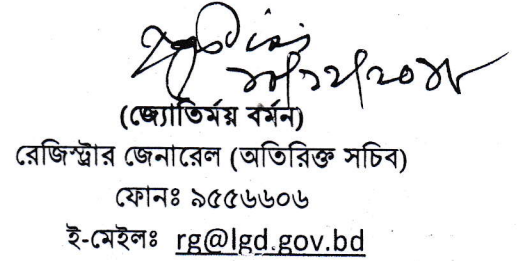 (জ্যোতির্ময় বর্মন)
রেজিস্ট্রার জেনারেল (অতিরিক্ত সচিব)
ফোনঃ ৯৫৫৬৬০৬
ই-মেইলঃ rg@lgd.gov.bd